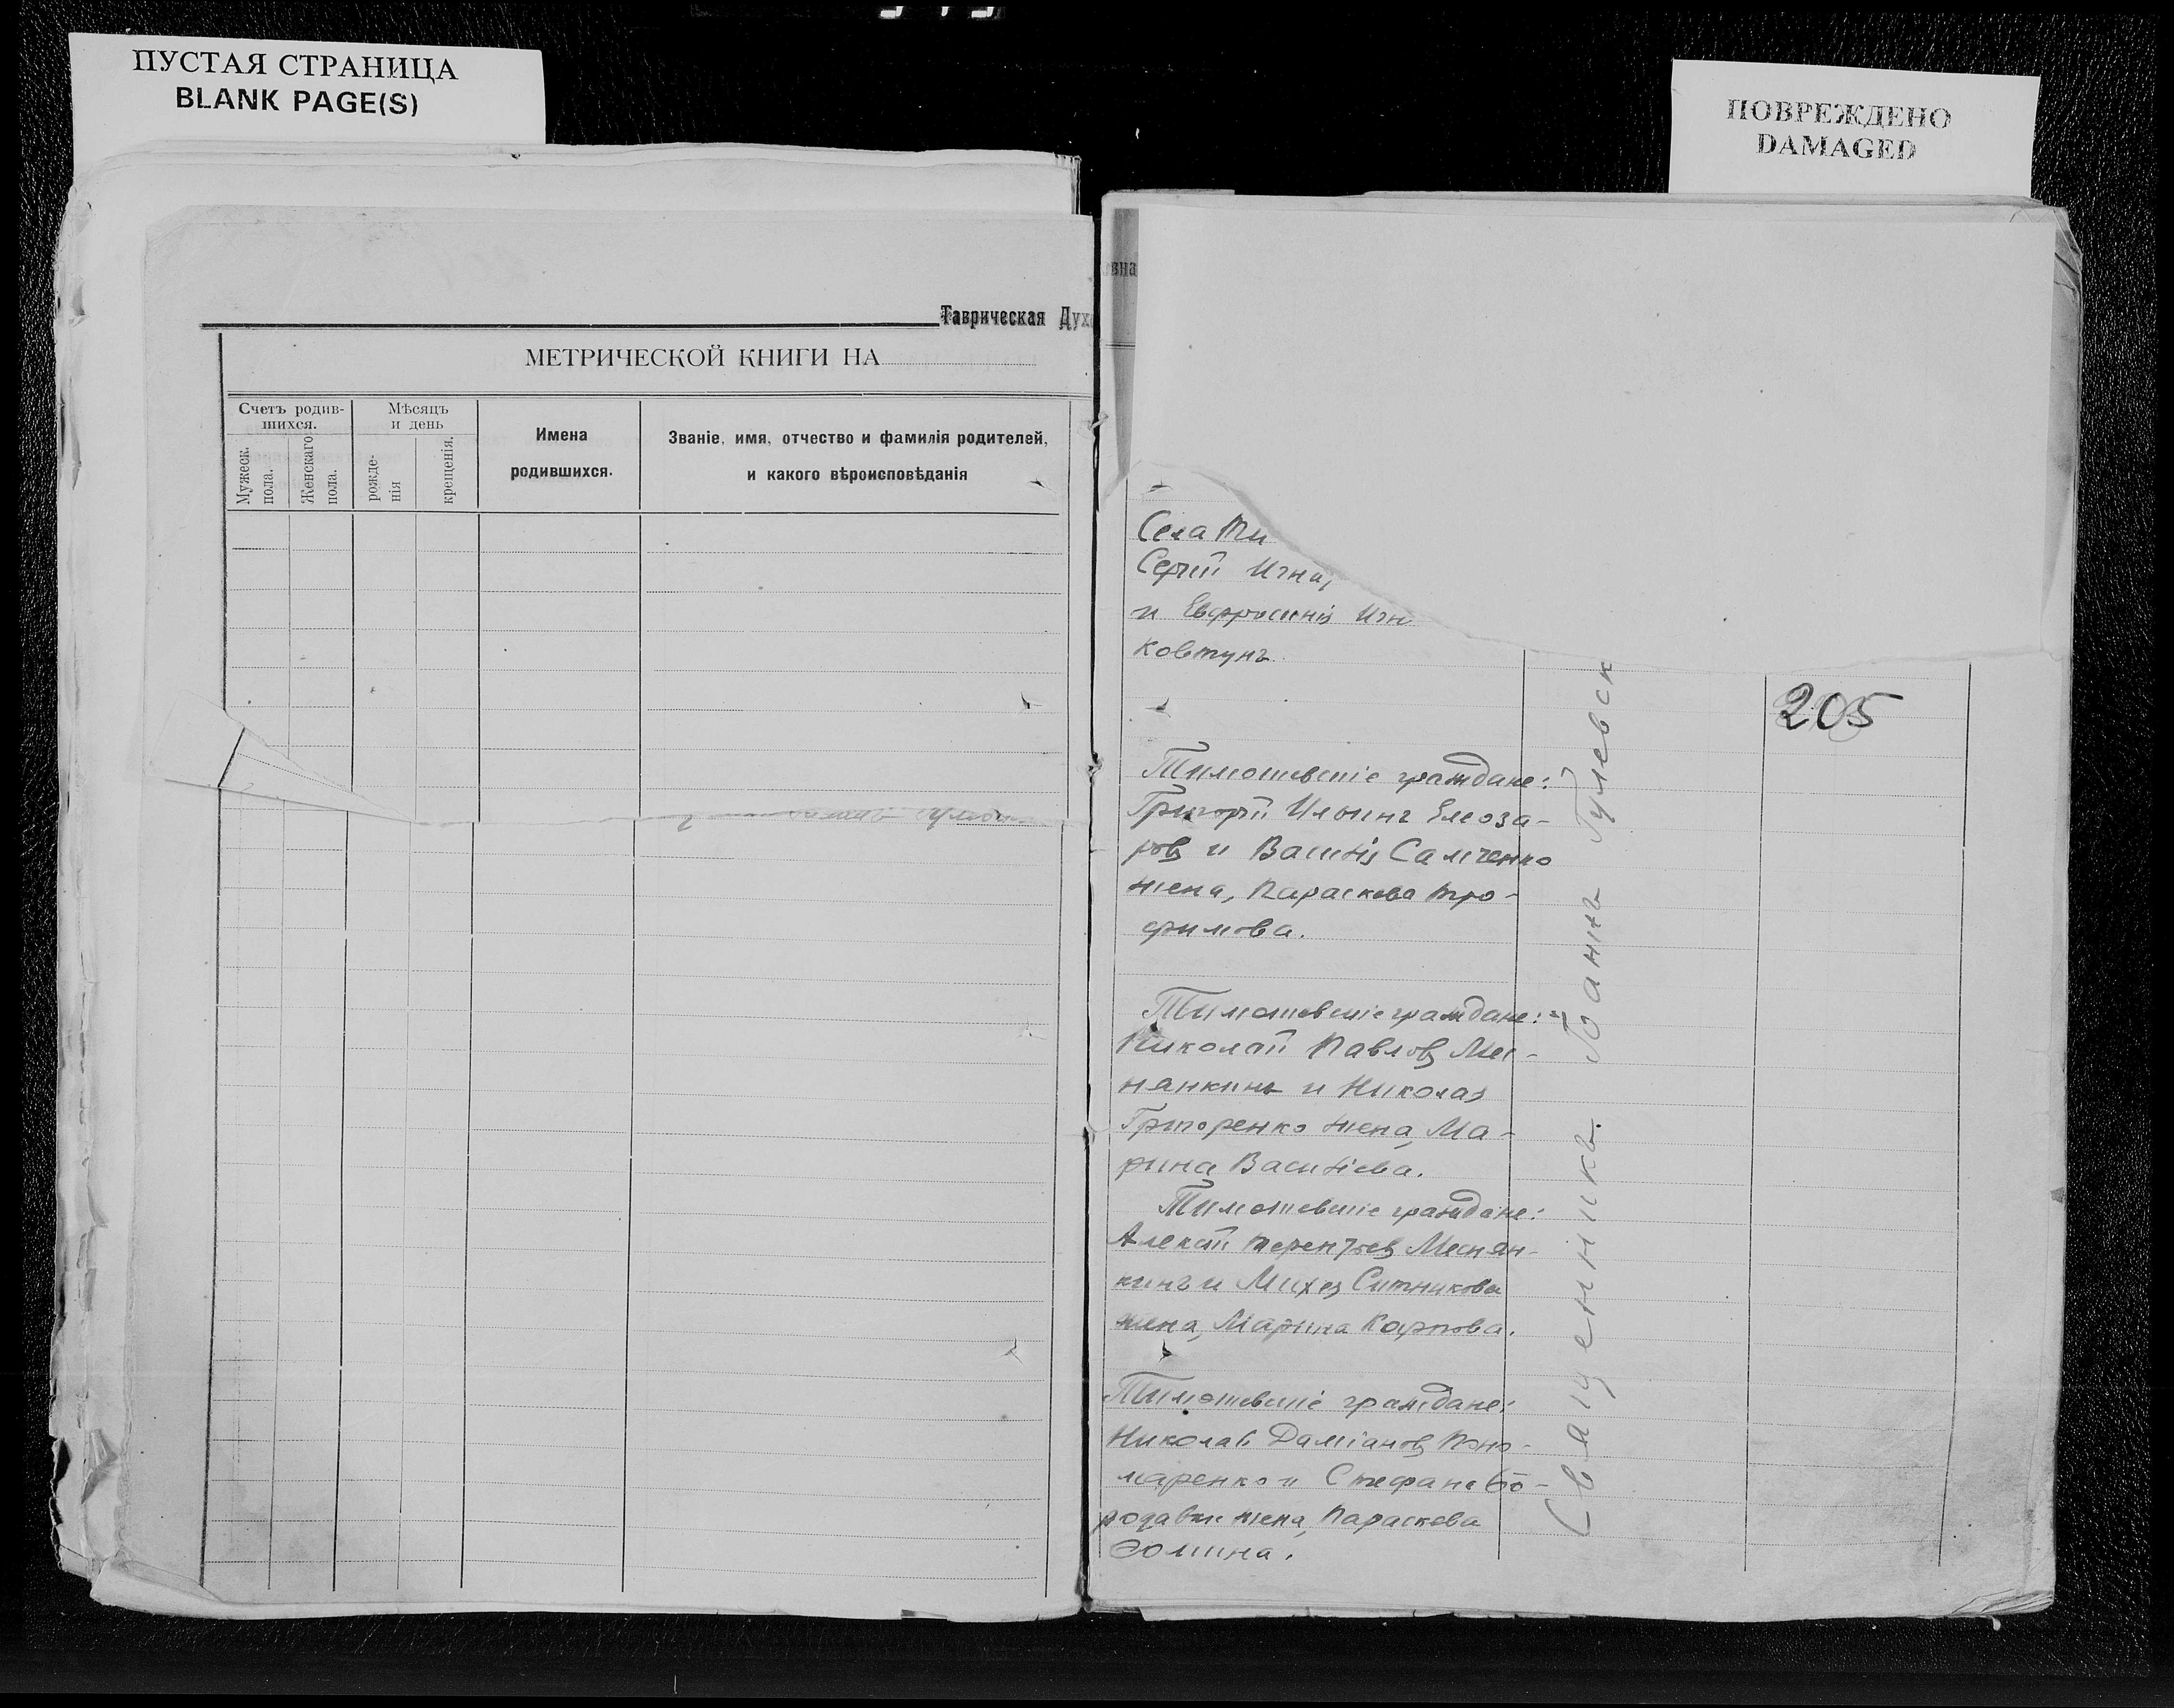 ПУСТАЯ СТРАНИЦА
BLANK PAGE(S)
ПОВРЕЖДЕНО
DAMAGED
Таврическая Духо
вна
МЕТРИЧЕСКОЙ КНИГИ НА
Счетъ родив-
шихся.
Мужеск.
пола.
Женскаго
пола.
Мѣсяцъ
и день
рожде-
нія
крещенія.
Имена
родившихся.
Званіе, имя, отчество и фамилія родителей,
и какого вѣроисповѣданія
Села Ти
Сергій Игна
и Евфросинія Игн
Ковтунъ
205
Тимошевскіе граждане:
Григорій Ильинъ Елеоза-
ровъ и Василія Самченко
жена, Параскева Тро-
фимова.
Тимошевскіе граждане:
Николай Павловъ Мес-
нянкинъ и Николая
Григоренко жена, Ма-
рина Василіева.
Тимошевскіе граждане:
Алексій Терентьевъ Меснян-
кинъ и Ситникова
жена, Марина Карпова.
Тимошевскіе граждане:
Николай Даміановъ Поно-
маренко и Стефана Бо-
родавки жена, Параскева
Фомина.
Священникъ Гулевск